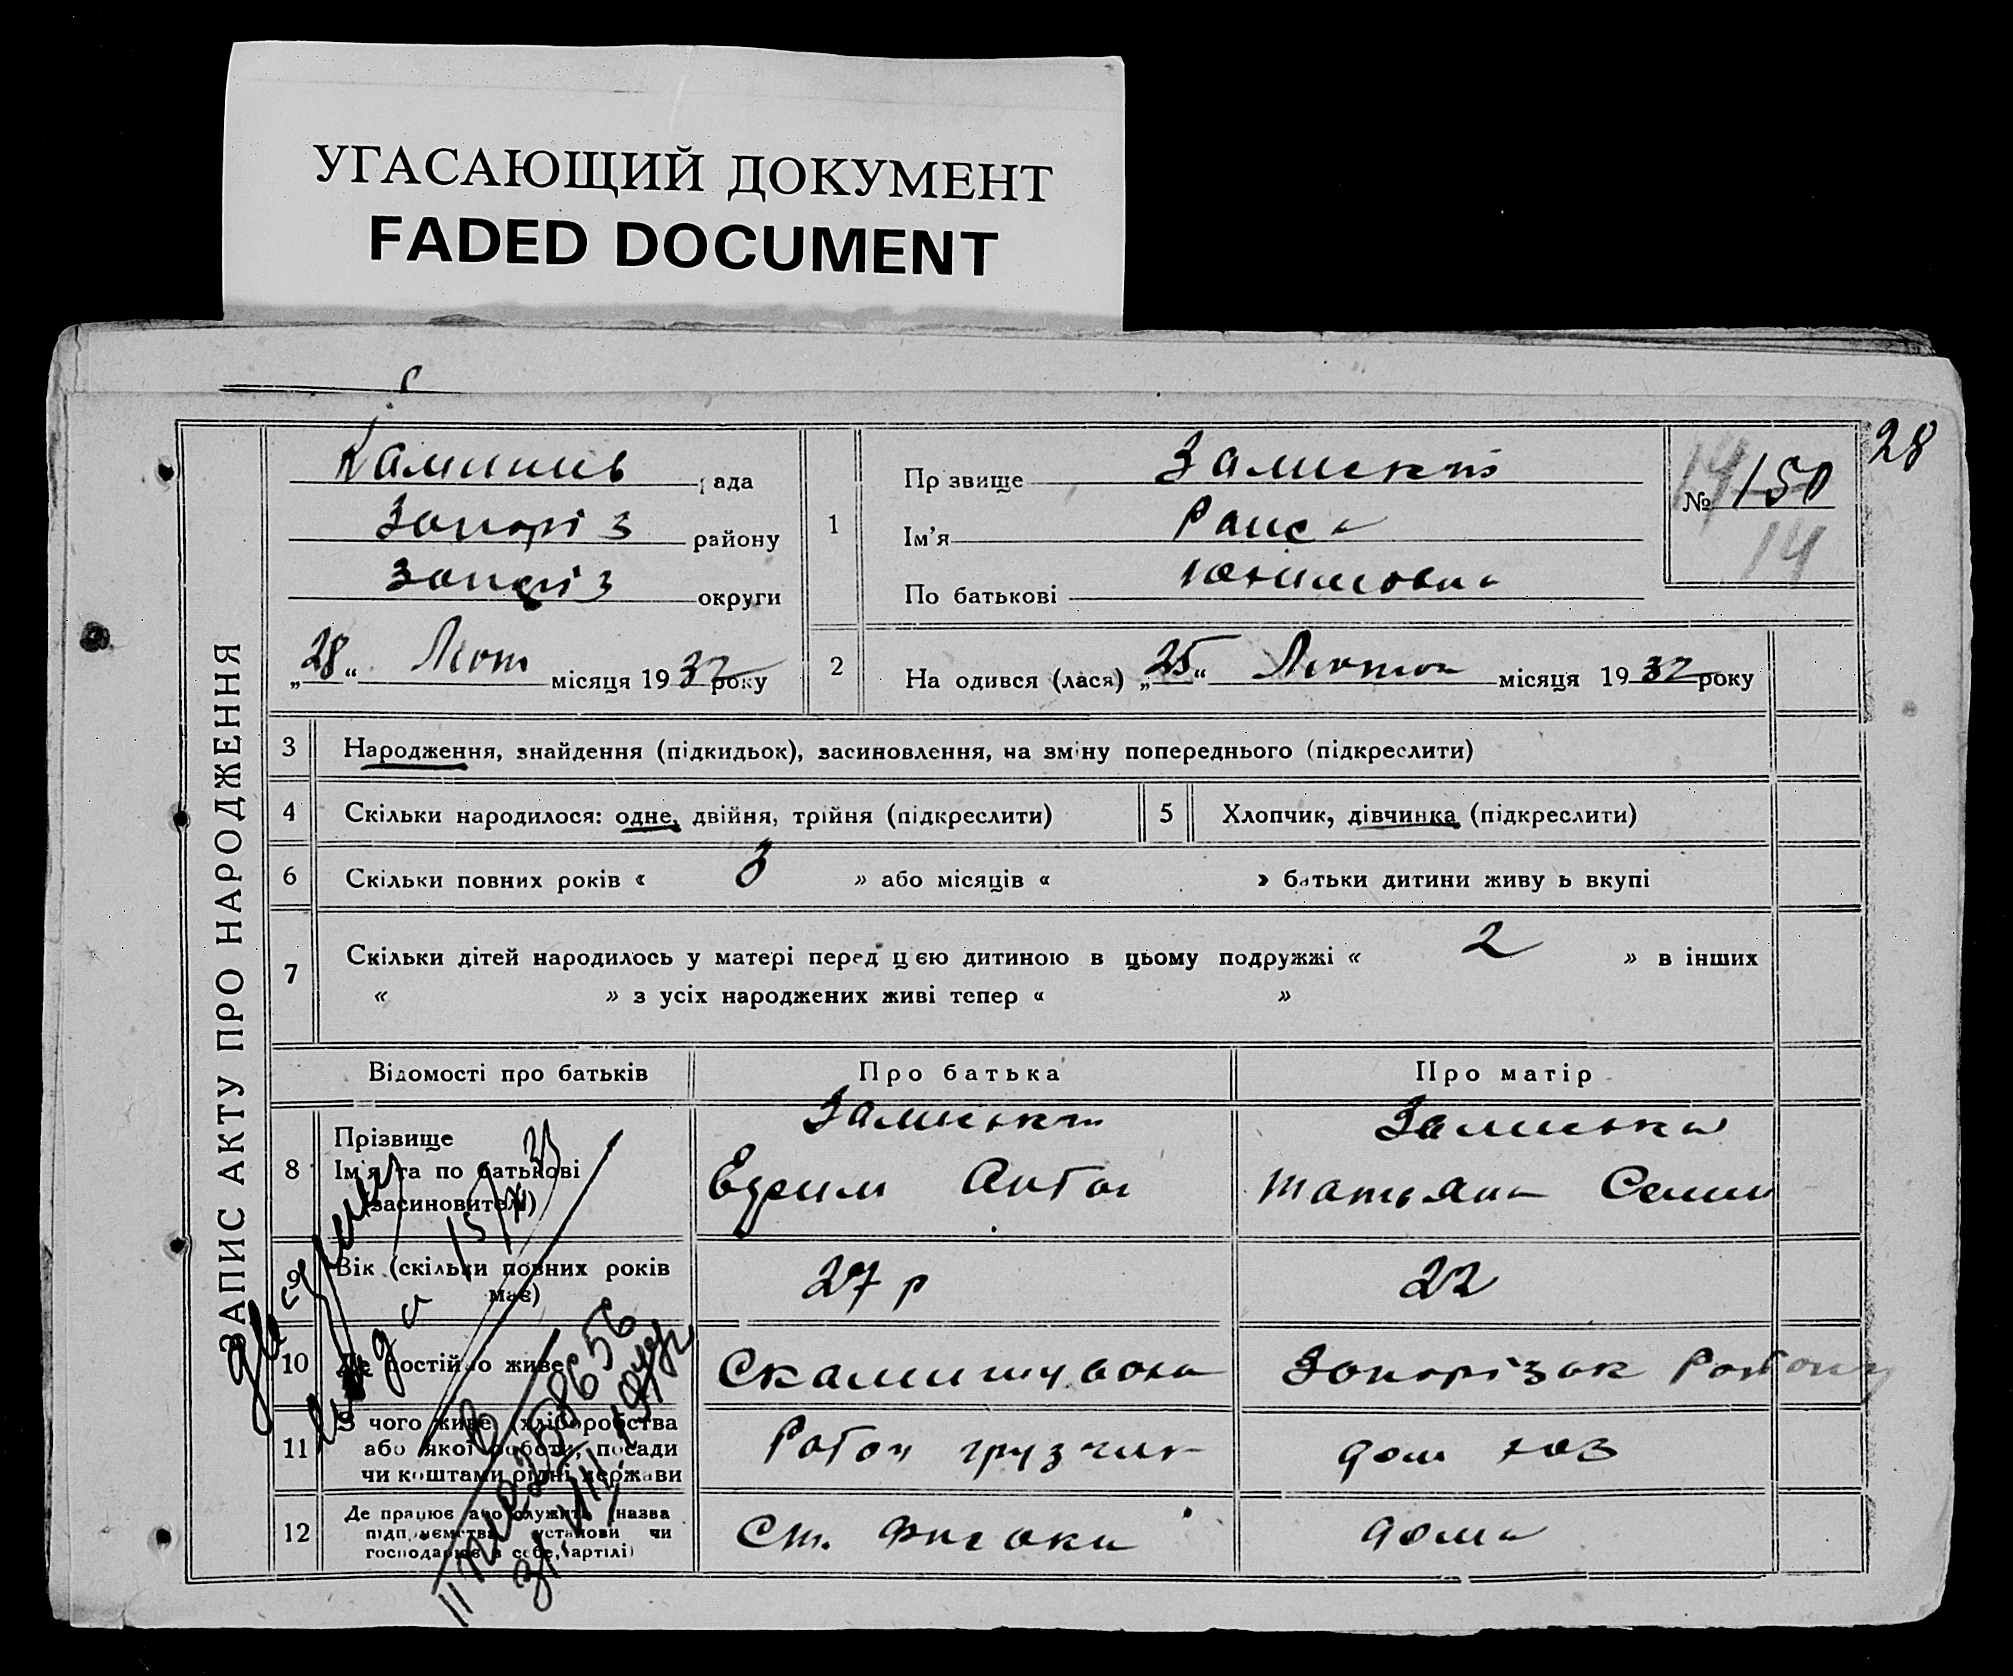 УГАСАЮЩИЙ ДОКУМЕНТ
FADED DOCUMENT
28
ЗАПИС АКТУ ПРО НАРОДЖЕННЯ
Камишив рада
Запоріз району
Запоріз округи
„28“ Лют місяця 1932 року
1
Пр звище
Ім'я Раиса
По батькові Юхимовна
№ 150
14
14
2 На одився (лася) „25“ Лютого місяця 1932 року
3 Народження, знайдення (підкидьок), засиновлення, на зміну попереднього (підкреслити)
4 Скільки народилося: одне, двійня, трійня (підкреслити)
5 Хлопчик, дівчинка (підкреслити)
6 Скільки повних років « 3 » або місяців « » батьки дитини живу ь вкупі
7 Скільки дітей народилось у матері перед цією дитиною в цьому подружжі « 2 » в інших
« » з усіх народжених живі тепер « »
Відомості про батьків Про батька Про матір
8 Прізвище
Ім'я та по батькові
(засиновителі)
Ефим Антон
Татьяна Семен
9 Вік (скільки повних років має) 27 р 22
10 Де постійно живе Запорізак
11 З чого живе (хліборобства
або якої роботи, посади
чи коштами рідні, держави
Работ грузчик
дом хоз
12 Де працює або служить (назва
підприємства, установи чи
господарює в себе, артілі)
Ст.
дома